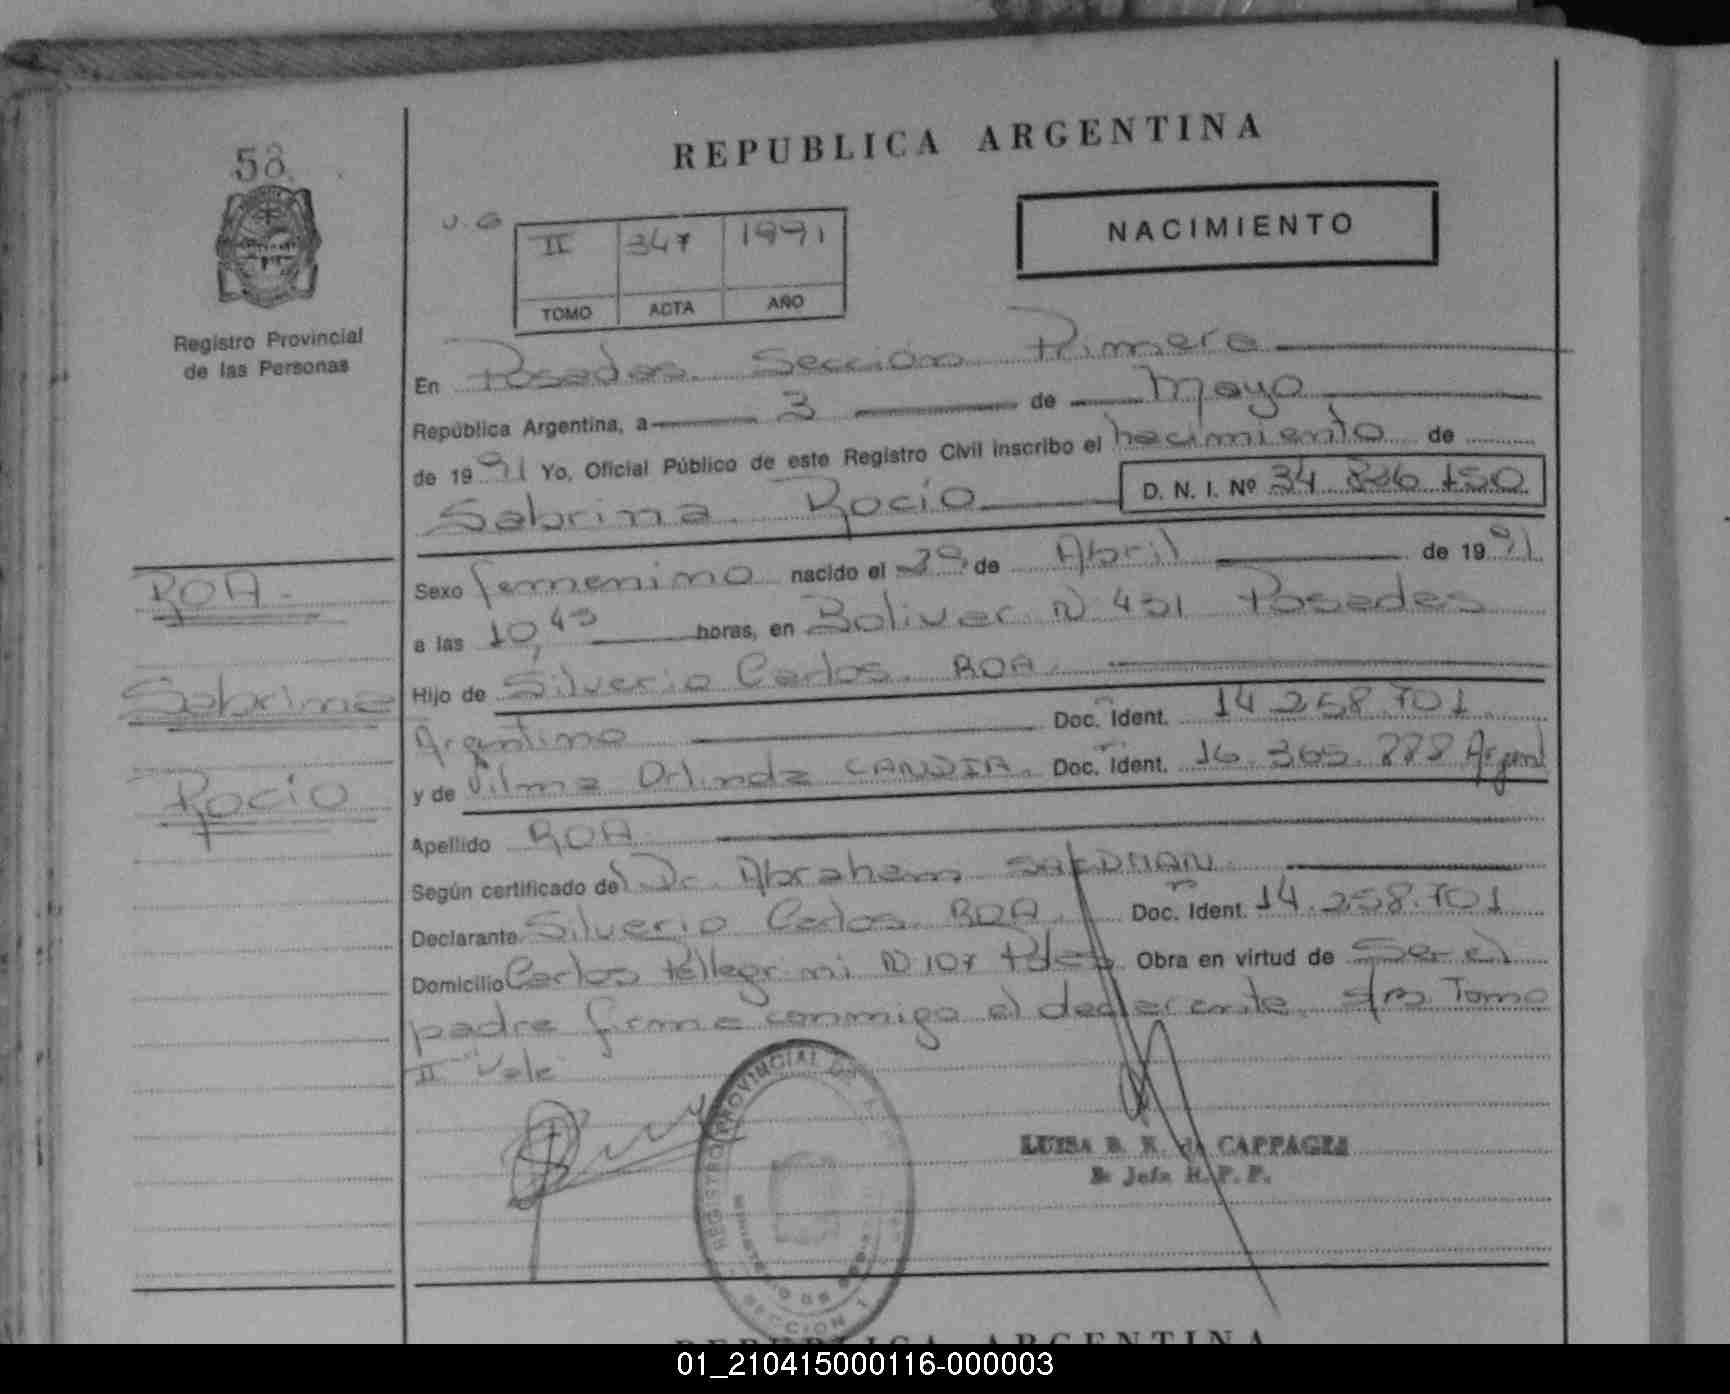 REPUBLICA ARGENTINA
58
NACIMIENTO
II 347 1991
TOMO ACTA AÑO
Registro Provincial
de las Personas
En Posadas Sección Primera
República Argentina, a 3 de Mayo
de 1991 Yo, Oficial Público de este Registro Civil inscribo el nacimiento de
Sabrina Rocío D. N. I. Nº 34.836.150
ROA
Sabrina
Rocío
Sexo femenino nacido el 29 de Abril de 1991
a las 10,45 horas, en Bolivar N 451 Posadas
Hijo de Silverio Carlos ROA
Argentino Doc. Ident. 14.258.701
y de Vilma Orlinda CANDIA Doc. Ident. 16.365.888 Argent
Apellido ROA
Según certificado del Dr. Abraham
Declarante Silverio Carlos ROA Doc. Ident. 14.258.701
Domicilio Carlos Pellegrini N 107 Pdas Obra en virtud de Ser el
padre firma conmigo el declarante. Tomo
II Vale
REGISTRO PROVINCIAL DE
MINISTERIO DE
SECCION 1
LUISA B. K. de CAPPAGLI
Jefa R. P. P.
REPUBLICA ARGENTINA
01_210415000116-000003